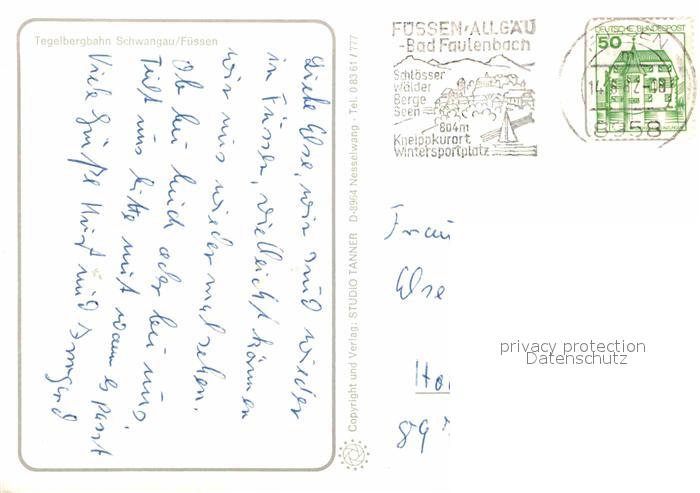 Tegelbergbahn Schwangau/Füssen
Liebe Else, wir sind wieder
in Füssen, vielleicht können
wir uns wieder mal sehen.
Ob bei Euch oder bei uns.
Teilt uns bitte mit wann es passt
Viele Grüße Kurt und Irmgard
Copyright und Verlag: STUDIO TANNER D-8964 Nesselwang · Tel. 0 83 61 / 777
FÜSSEN·ALLGÄU
-Bad Faulenbach
Schlösser
Wälder
Berge
Seen
804m
Kneippkurort
Wintersportplatz
DEUTSCHE BUNDESPOST
50
8958
Frau
Else
Ha
89
privacy protection
Datenschutz